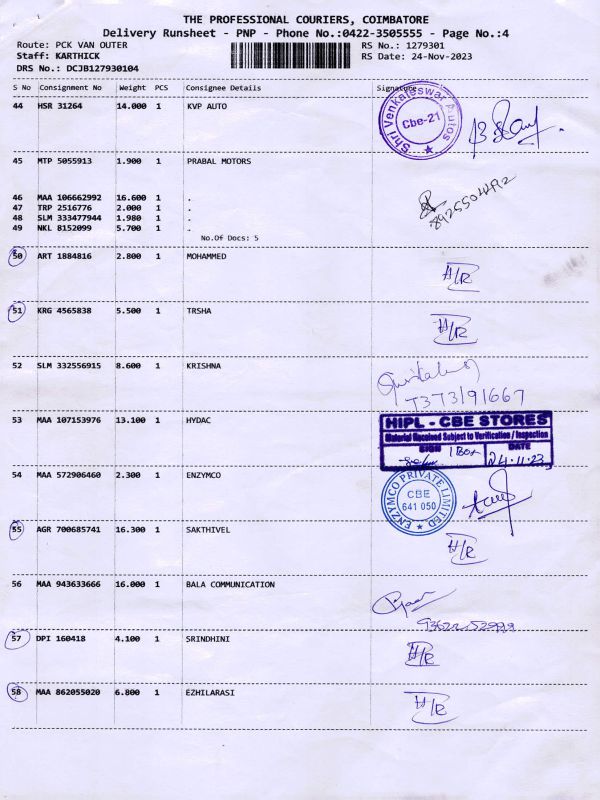 THE PROFESSIONAL COURIERS, COIMBATORE
Delivery Runsheet - PNP - Phone No.:0422-3505555 - Page No.:4
Route: PCK VAN OUTER RS No.: 1279301
Staff: KARTHICK RS Date: 24-Nov-2023
DRS No.: DCJB127930104
S No Consignment No Weight PCS Consignee Details Signature
44 HSR 31264 14.000 1 KVP AUTO
Shri Venkateswar Autos
Cbe-21
45 MTP 5055913 1.900 1 PRABAL MOTORS
46 MAA 106662992 16.600 1 .
47 TRP 2516776 2.000 1 .
48 SLM 333477944 1.980 1 .
49 NKL 8152099 5.700 1 .
No.Of Docs: 5
50 ART 1884816 2.800 1 MOHAMMED
H/R
51 KRG 4565838 5.500 1 TRSHA
H/R
52 SLM 332556915 8.600 1 KRISHNA
7373191667
53 MAA 107153976 13.100 1 HYDAC
HIPL - CBE STORES
Material Received Subject to Verification / Inspection
SIGN DATE
1 Box 24.11.23
54 MAA 572906460 2.300 1 ENZYMCO
ENZYMCO PRIVATE LIMITED
CBE
641 050
55 AGR 700685741 16.300 1 SAKTHIVEL
H/R
56 MAA 943633666 16.000 1 BALA COMMUNICATION
57 DPI 160418 4.100 1 SRINDHINI
H/R
58 MAA 862055020 6.800 1 EZHILARASI
H/R